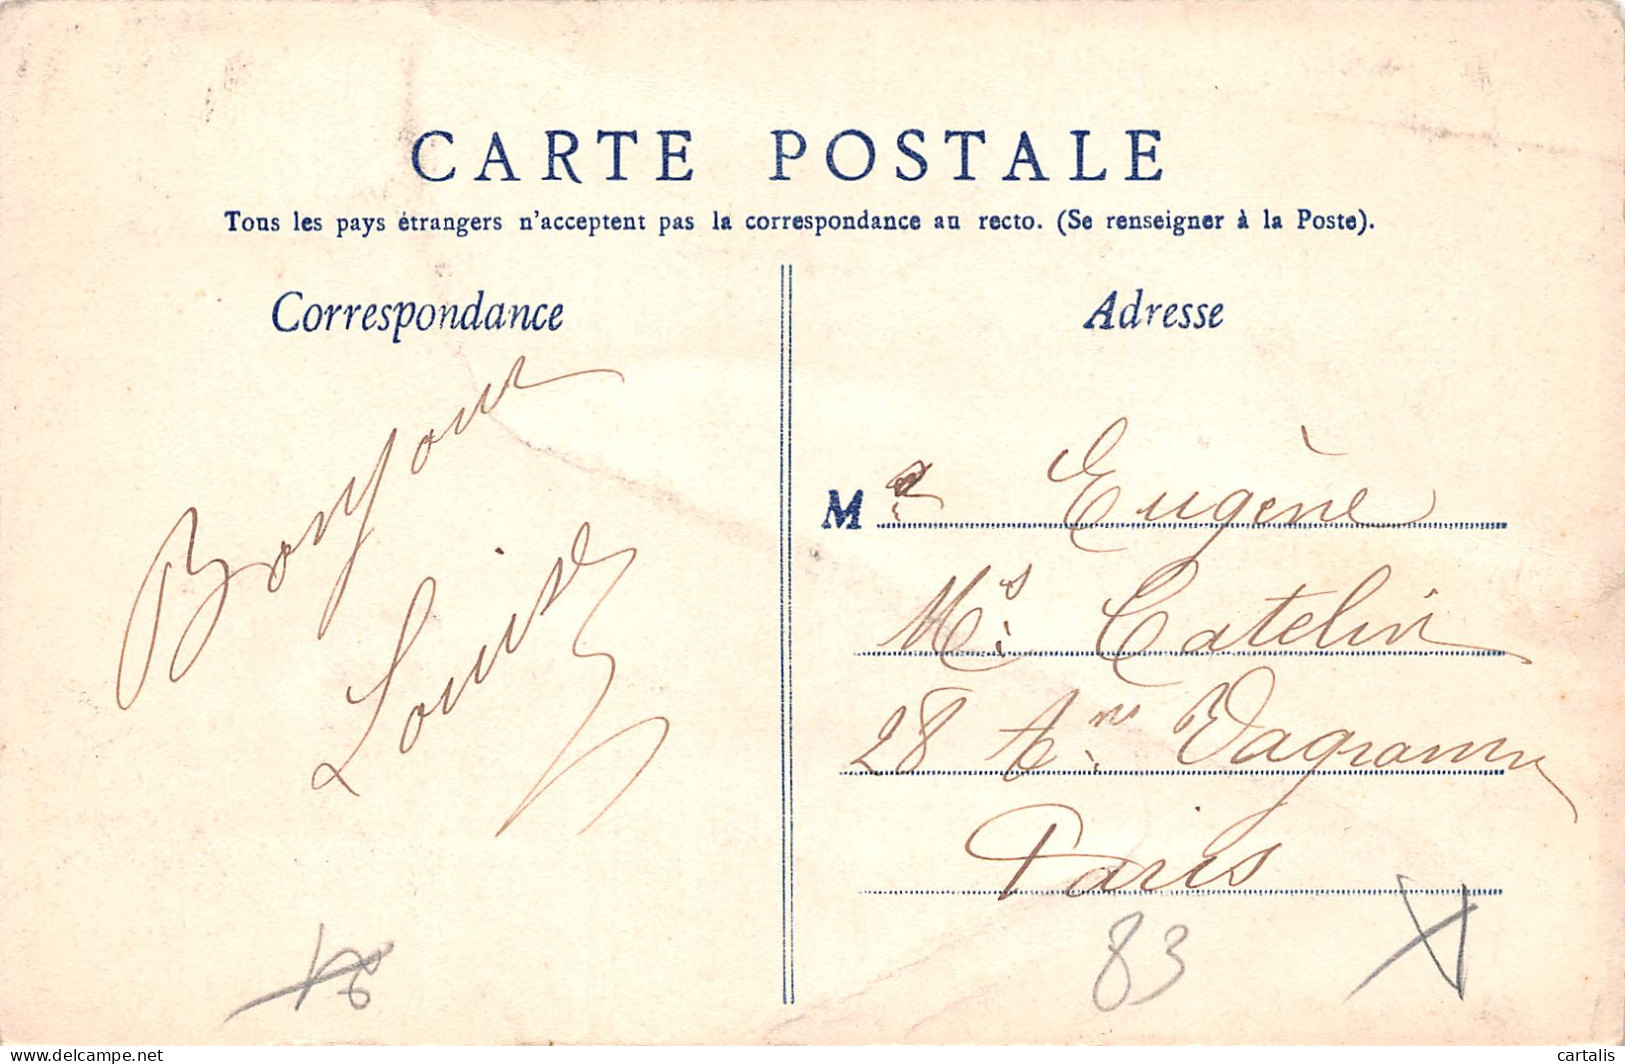 CARTE POSTALE
Tous les pays étrangers n'acceptent pas la correspondance au recto. (Se renseigner à la Poste).
Correspondance
Adresse
Bonjour
Louise
M Eugène
Catelin
28 Wagram
Paris
83
www.delcampe.net
cartalis